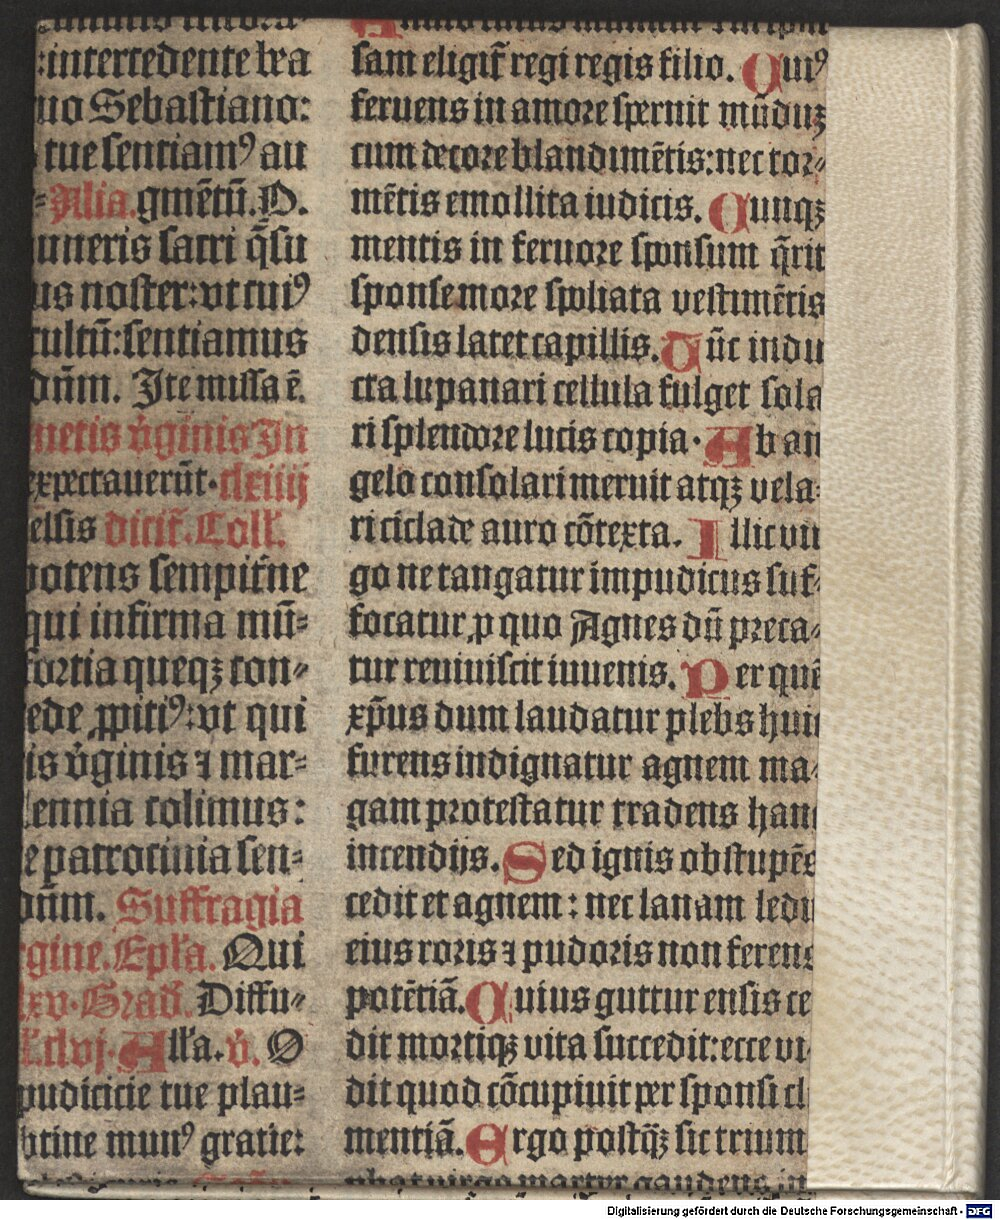 :intercedente bea
uo Sebastiano:
tue sentiamꝰ au
⸗Alia.gmētū.P.
uneris sacri q̄su
us noster:vt cuiꝰ
cultū:sentiamus
dn̄m. Ite missa ē.
netis v̓ginis In
expectauerūt. clxiiij
elsis dicit̃.Coll̓.
potens sempit̓ne
qui infirma mū⸗
fortia queqꝫ con⸗
ede ꝓpitiꝰ:vt qui
is v̓ginis ⁊ mar⸗
lennia colimus:
e patrocinia sen⸗
dn̄m. Suffragia
gine.Epl̓a. Qui
lxv.Grad̓.Diffu⸗
clvj.All̓a.v̓. O
pudicicie tue plau⸗
btine munꝰ gratie:
sam eligit̃ regi regis filio. Quiꝰ
feruens in amore spernit mūduꝫ
cum decore blandimētis:nec tor⸗
mētis emollita iudicis. Cunqꝫ
mentis in feruore sponsum q̄rit
sponse more spoliata vestimētis
densis latet capillis. Tūc indu
cta lupanari cellula fulget sola
ri splendore lucis copia. Ab an
gelo consolari meruit atqꝫ vela⸗
ri ciclade auro cōtexta. Illic vir
go ne tangatur impudicus suf⸗
focatur ꝓ quo Agnes dū preca⸗
tur reuiuiscit iuuenis. Per quē
xp̄us dum laudatur plebs huic
furens indignatur agnem ma⸗
gam protestatur tradens hanc
incendijs. Sed ignis obstupēs
cedit et agnem: nec lanam ledit
eius roris ⁊ pudoris non ferens
potētiā. Cuius guttur ensis ce
dit mortiqꝫ vita succedit:ecce vi
dit quod cōcupiuit per sponsi cl
mentiā. Ergo postq̄ꝫ sic trium
phat virgo martyr gaudens in
Digitalisierung gefördert durch die Deutsche Forschungsgemeinschaft - DFG